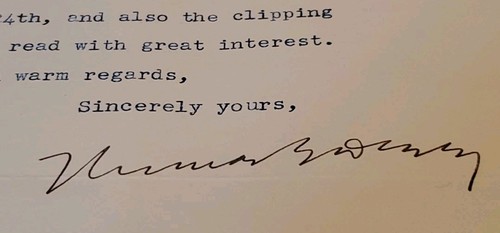 4th, and also the clipping
read with great interest.
warm regards,
Sincerely yours,
Thomas E. Dewey